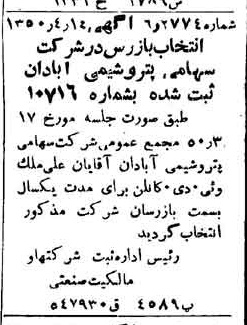 شماره ۶و۲۷۷۴ آگهی ۱۳۵۰،۴،۱۲
انتخاب بازرس در شرکت
سهامی پتروشیمی آبادان
ثبت شده بشماره ۱۰۷۱۶
طبق صورت جلسه مورخ ۱۷
۵۰ر۳ مجمع عمومی شرکت سهامی
پتروشیمی آبادان آقایان علی ملک
وئی ۰دی۰ کانلن برای مدت یکسال
بسمت بازرسان شرکت مذکور
انتخاب گردید
رئیس اداره ثبت شرکتها و
مالکیت صنعتی
پ ۴۵۸۹ ق ۵۴۷۹۳۰